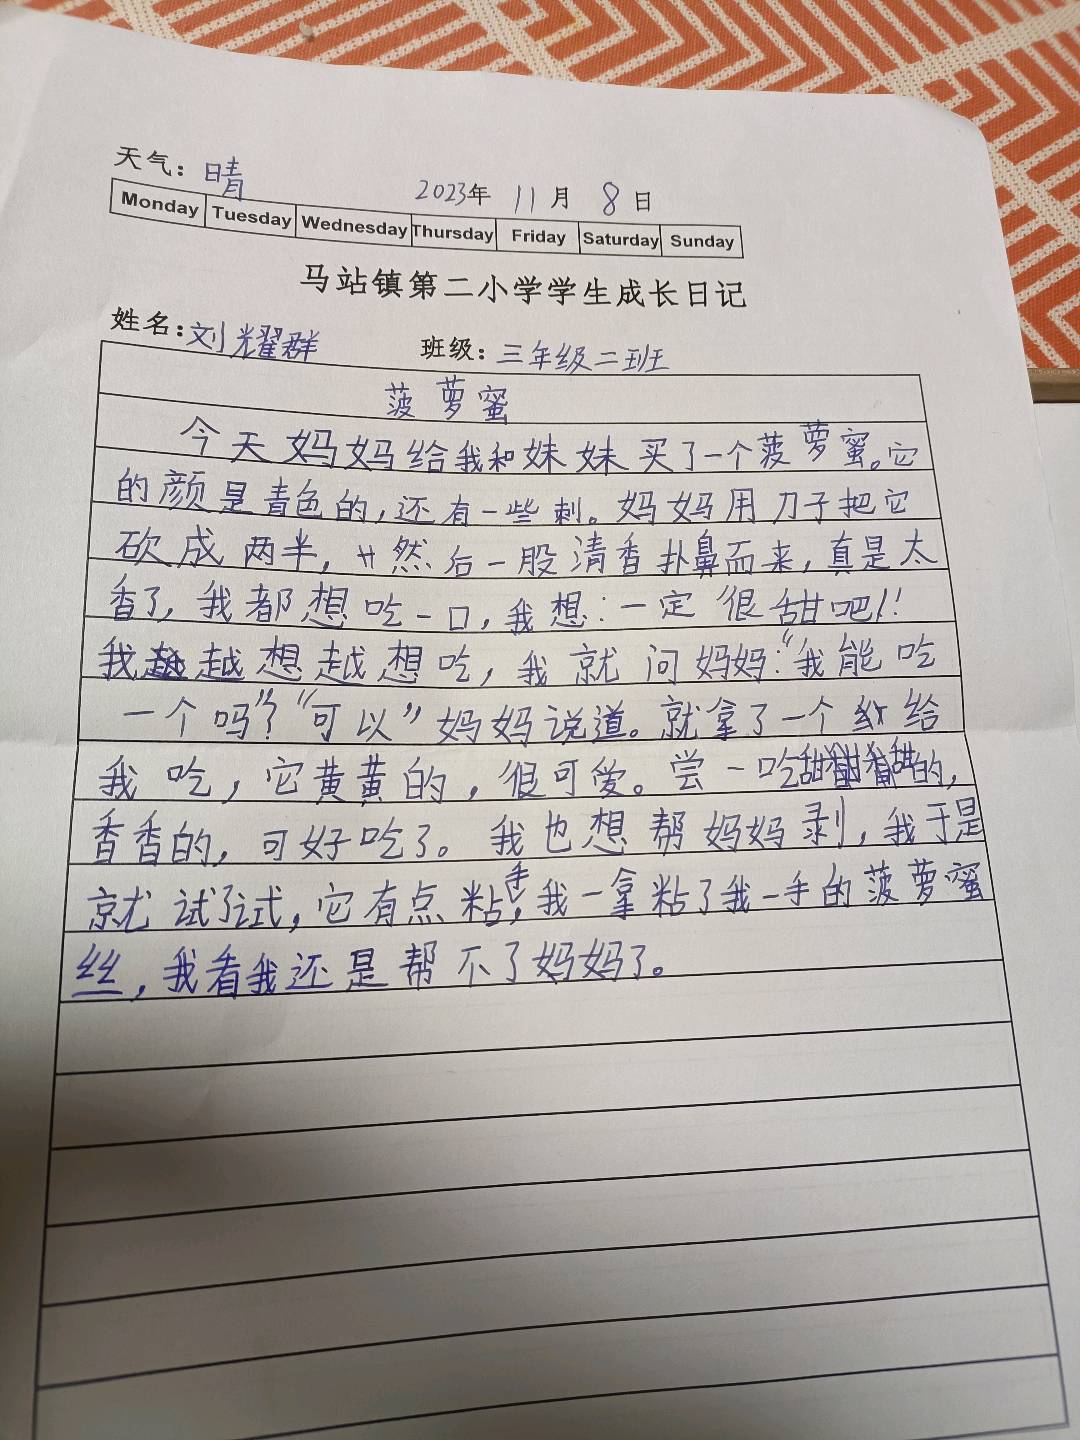 天气：晴 2023年 11月 8日
Monday Tuesday Wednesday Thursday Friday Saturday Sunday
马站镇第二小学学生成长日记
姓名：刘耀群 班级：三年级二班
菠萝蜜
今天妈妈给我和妹妹买了一个菠萝蜜。它
的颜是青色的，还有一些刺。妈妈用刀子把它
砍成两半，然后一股清香扑鼻而来，真是太
香了，我都想吃一口，我想：一定很甜吧！！
我越想越想吃，我就问妈妈：“我能吃
一个吗”？“可以”妈妈说道。就拿了一个给
我吃，它黄黄的，很可爱。尝一吃甜甜的，
香香的，可好吃了。我也想帮妈妈剥，我于是
就试了试，它有点粘手，我一拿粘了我一手的菠萝蜜
丝，我看我还是帮不了妈妈了。